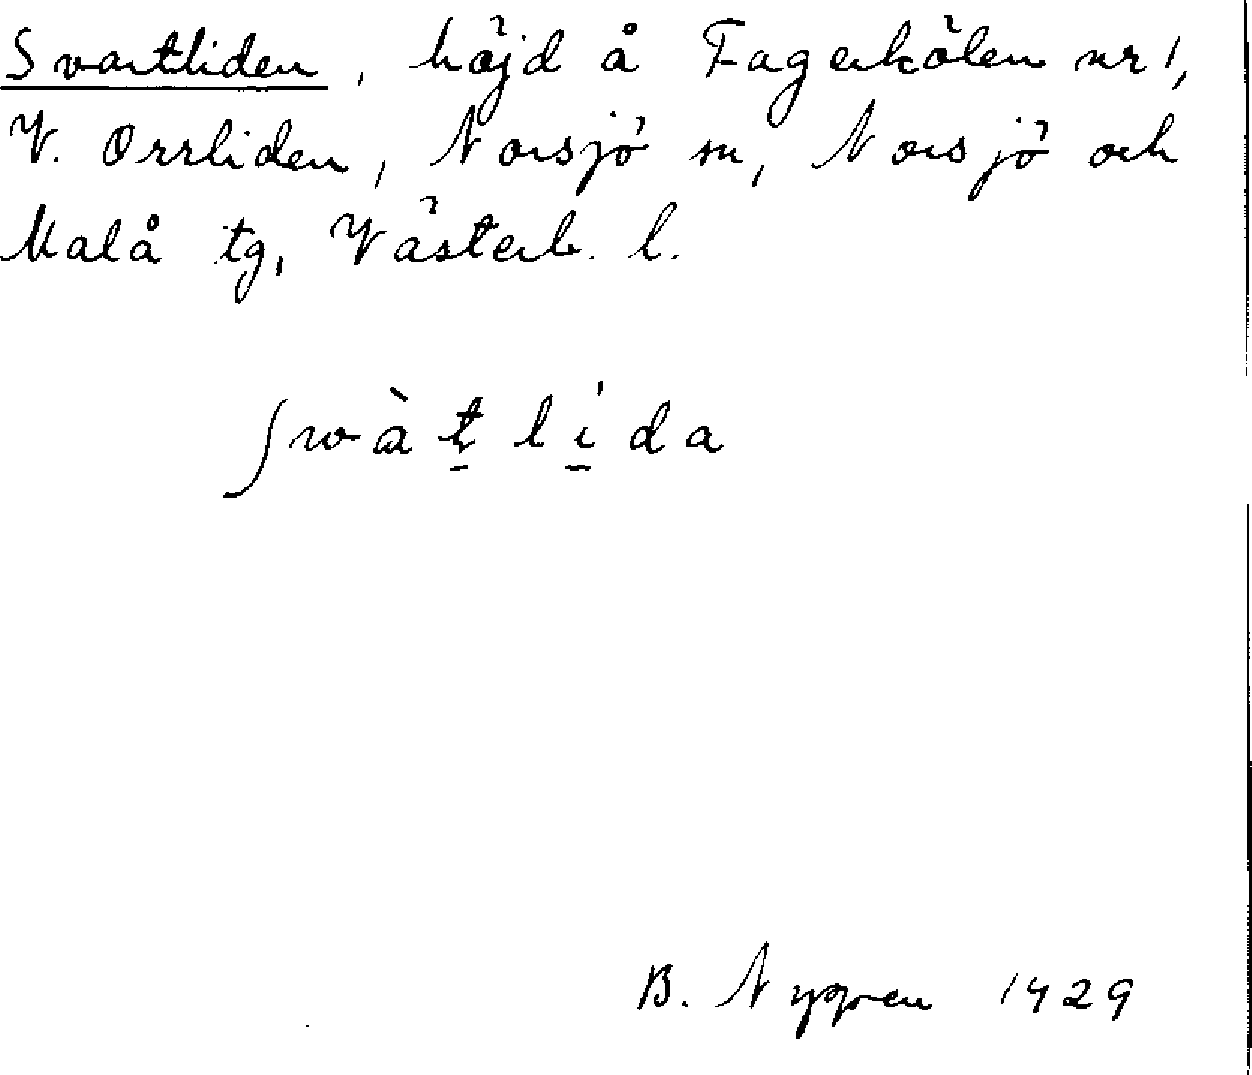 Svartliden, höjd å Fagerkölen nr 1,
V. Orrliden, Norsjö sn, Norsjö och
Malå tg, Västerb. l.
ʃwàt̠ lí̠da
B. Nygren 1929